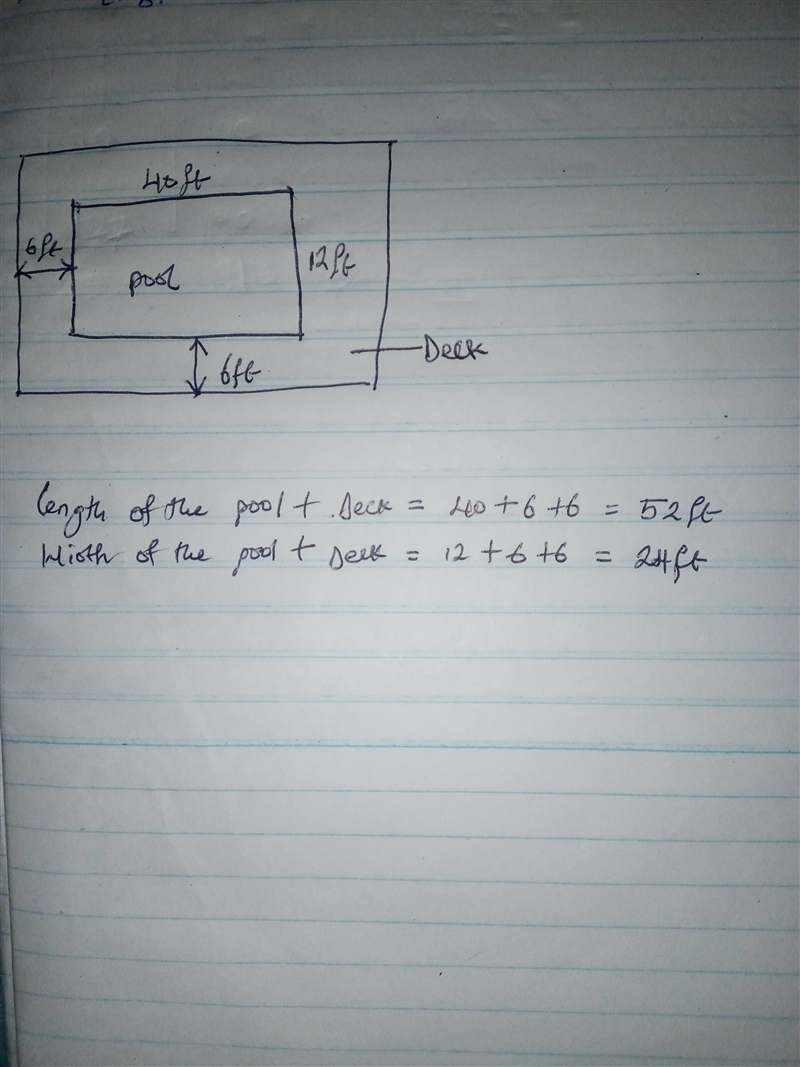 40ft
6ft
pool
12ft
Deck
6ft
Length of the pool + Deck = 40 + 6 + 6 = 52ft
Width of the pool + Deck = 12 + 6 + 6 = 24ft